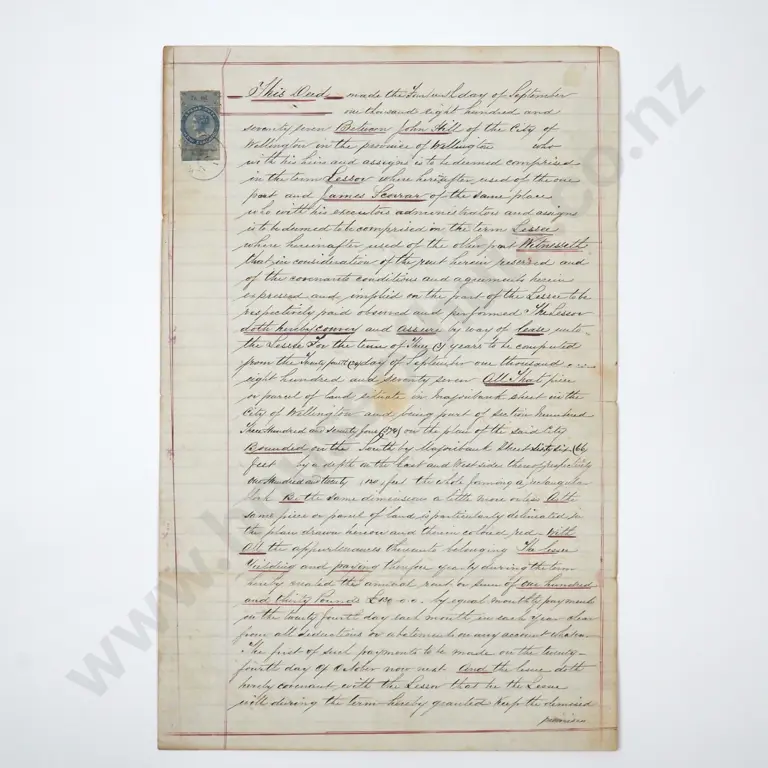 This Deed made the day of September
one thousand eight hundred and
seventy seven Between John Hill of the City of
Wellington in the province of Wellington who
with his heirs and assigns is to be deemed comprised
in the term Lessor where hereafter used of the one
part and James Scarrar of the same place
who with his executors administrators and assigns
is to be deemed to be comprised in the term Lessee
where hereinafter used of the other part Witnesseth
that in consideration of the rent herein reserved and
of the covenants conditions and agreements herein
expressed and implied on the part of the Lessee to be
respectively paid observed and performed The Lessor
doth hereby convey and assure by way of lease unto
the Lessee For the term of years to be computed
from the Twenty fourth (24) day of September one thousand
eight hundred and seventy seven All That piece
or parcel of land situate in Majoribank street in the
City of Wellington and being part of section numbered
Three Hundred and Seventy four (374) on the plan of the said City
Bounded on the South by Majoribank Street Sixty six (66)
feet by a depth on the East and West sides thereof respectively
One Hundred and twenty feet the whole forming a rectangular
block Be the same dimensions a little more or less As the
same piece or parcel of land is particularly delineated in
the plan drawn hereon and therein colored red With
All the appurtenances thereunto belonging The Lessee
Yielding and paying therefor yearly during the term
hereby created the annual rent or sum of one hundred
and thirty Pounds by equal monthly payments
on the twenty fourth day each month in each year clear
from all deductions or abatements on any account whatever
The first of such payments to be made on the twenty-
fourth day of October now next And the Lessee doth
hereby covenant with the Lessor that he the Lessee
will during the term hereby granted keep the demised
premises